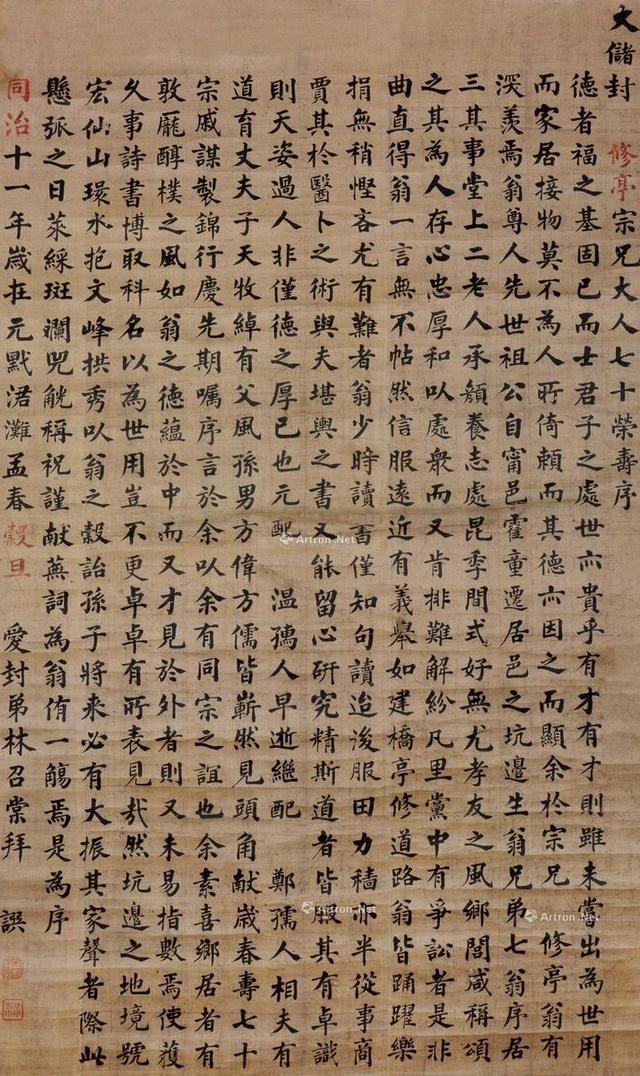 大儲封 修亭宗兄大人七十榮壽序
德者福之基固已而士君子之處世亦貴乎有才有才則雖未嘗出為世用
而家居接物莫不為人所倚賴而其德亦因之而顯余於宗兄 修亭翁有
深羨焉翁尊人先世祖公自甯邑霍童遷居邑之坑邊生翁兄弟七翁序居
三其事堂上二老人承顏養志處昆季間式好無尤孝友之風鄉閭咸稱頌
之其為人存心忠厚和以處衆而又肯排難解紛凡里黨中有爭訟者是非
曲直得翁一言無不帖然信服遠近有義舉如建橋亭修道路翁皆踊躍樂
捐無稍慳吝尤有難者翁少時讀書僅知句讀迨後服田力穡亦半從事商
賈其於醫卜之術與夫堪輿之書又能留心研究精斯道者皆服其有卓識
則天姿過人非僅德之厚已也元配 溫孺人早逝繼配 鄭孺人相夫有
道育丈夫子天牧綽有父風孫男方偉方儒皆嶄然見頭角献歲春壽七十
宗戚謀製錦行慶先期嘱序言於余以余有同宗之誼也余素喜鄉居者有
敦龐醇樸之風如翁之德蘊於中而又才見於外者則又未易指數焉使獲
久事詩書博取科名以為世用豈不更卓卓有所表見哉然坑邊之地境號
宏仙山環水抱文峰拱秀以翁之穀詒孫子將来必有大振其家聲者際此
懸弧之日萊綵斑斕兕觥稱祝謹献蕪詞為翁侑一觴焉是為序
同治十一年歲在元黓涒灘孟春 穀旦 愛封弟林召棠拜 譔
Artron.Net
Artron.Net
Artron.Net